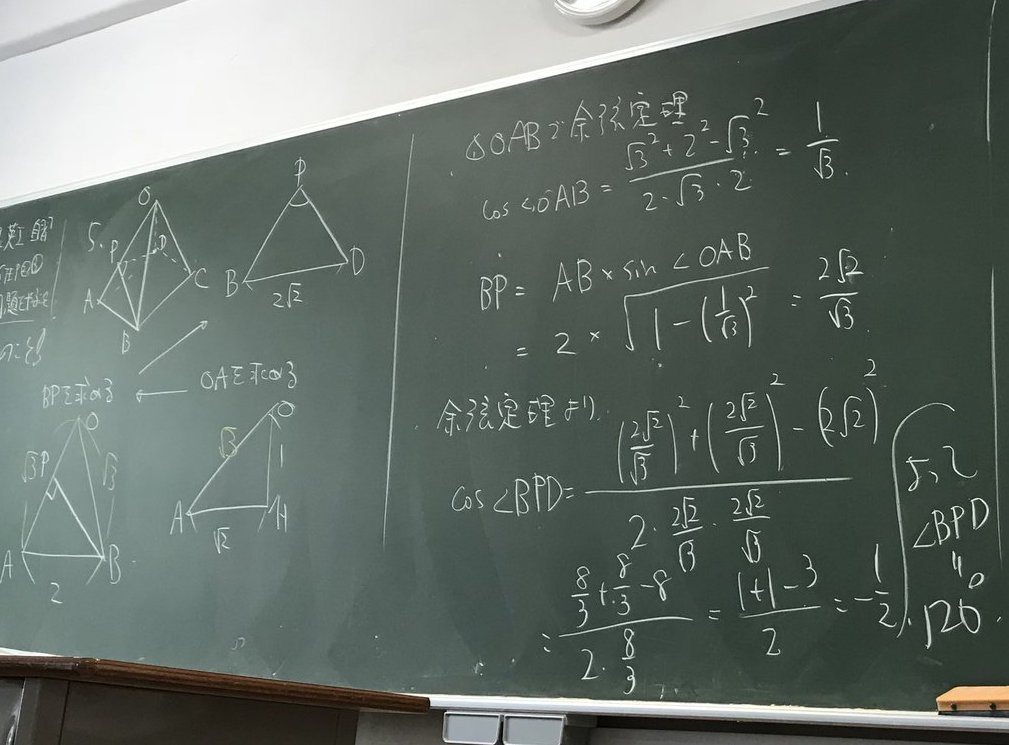 5.
O
P
D
A
B
C
P
B
D
2√2
BPを求める ← OAを求める
O
√3
P
√3
A
B
2
O
√3
1
A
H
√2
△OABで余弦定理
cos∠OAB = (√3² + 2² - √3²) / (2・√3・2) = 1/√3.
BP = AB × sin∠OAB
= 2 × √(1 - (1/√3)²) = 2√2/√3
余弦定理より,
cos∠BPD = ((2√2/√3)² + (2√2/√3)² - (2√2)²) / (2・2√2/√3・2√2/√3)
= (8/3 + 8/3 - 8) / (2・8/3) = (1+1-3)/2 = -1/2
よって
∠BPD
=
120°.